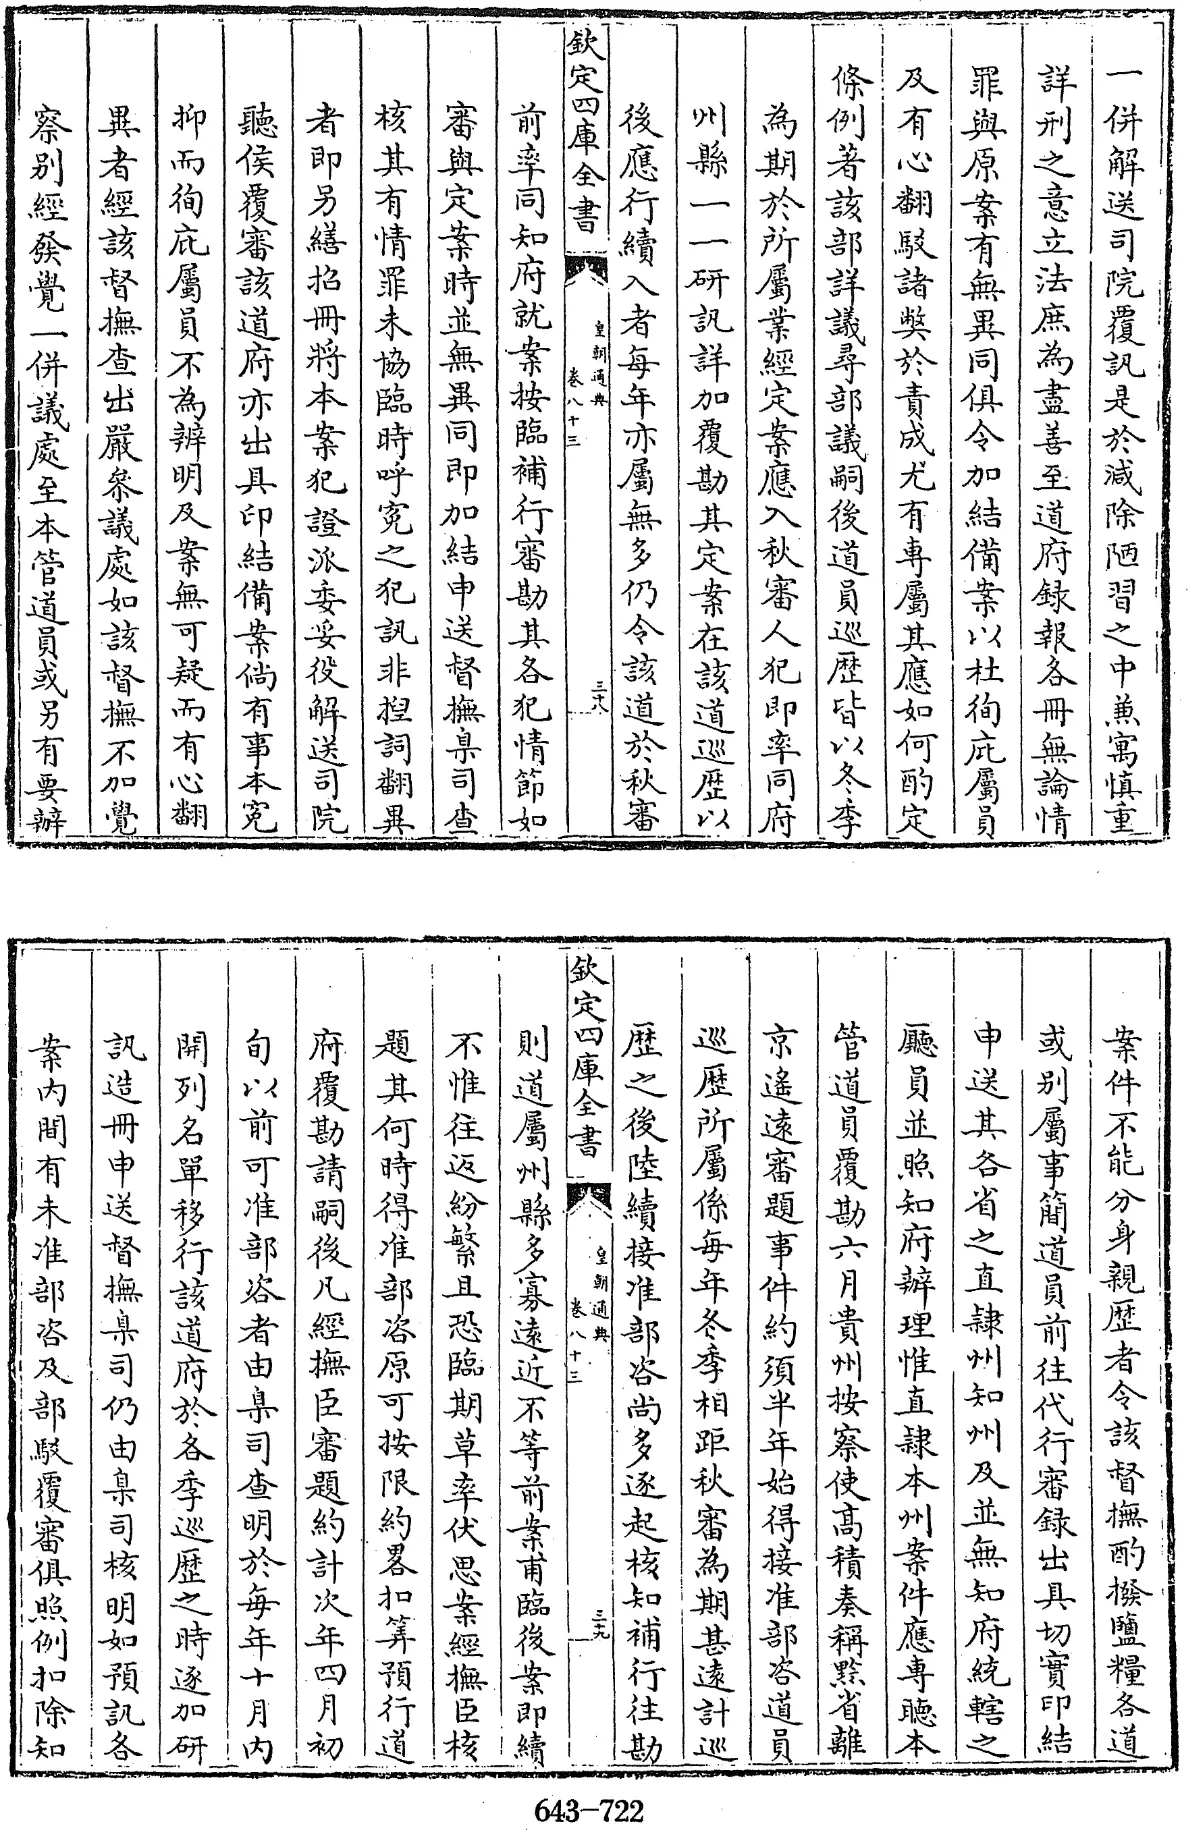 一併解送司院覆訊是於減除陋習之中兼寓慎重
詳刑之意立法庶為盡善至道府録報各冊無論情
罪與原案有無異同俱令加結備案以杜徇庇屬員
及有心翻駁諸弊於責成尤有專屬其應如何酌定
條例著該部詳議尋部議嗣後道員巡歴皆以冬季
為期於所屬業經定案應入秋審人犯即率同府
州縣一一研訊詳加覆勘其定案在該道巡歴以
後應行續入者每年亦屬無多仍令該道於秋審
欽定四庫全書
皇朝通典
卷八十三
三十八
前率同知府就案按臨補行審勘其各犯情節如
審與定案時並無異同即加結申送督撫臬司查
核其有情罪未協臨時呼寃之犯訊非揑詞翻異
者即另繕招冊將本案犯證派委妥役解送司院
聽侯覆審該道府亦出具印結備案倘有事本寃
抑而徇庇屬員不為辨明及案無可疑而有心翻
異者經該督撫查出嚴叅議處如該督撫不加覺
察别經發覺一併議處至本管道員或另有要辦
案件不能分身親歴者令該督撫酌撥鹽糧各道
或别屬事簡道員前往代行審録出具切實印結
申送其各省之直隷州知州及並無知府統轄之
廳員並照知府辦理惟直隷本州案件應專聽本
管道員覆勘六月貴州按察使髙積奏稱黔省離
京遙遠審題事件約須半年始得接准部咨道員
巡歴所屬係每年冬季相距秋審為期甚遠計巡
歴之後陸續接准部咨尚多逐起核知補行往勘
欽定四庫全書
皇朝通典
卷八十三
三十九
則道屬州縣多寡遠近不等前案甫臨後案即續
不惟往返紛繁且恐臨期草率伏思案經撫臣核
題其何時得准部咨原可按限約畧扣算預行道
府覆勘請嗣後凡經撫臣審題約計次年四月初
旬以前可准部咨者由臬司查明於每年十月内
開列名單移行該道府於各季巡歴之時逐加研
訊造冊申送督撫臬司仍由臬司核明如預訊各
案内間有未准部咨及部駁覆審俱照例扣除知
643-722